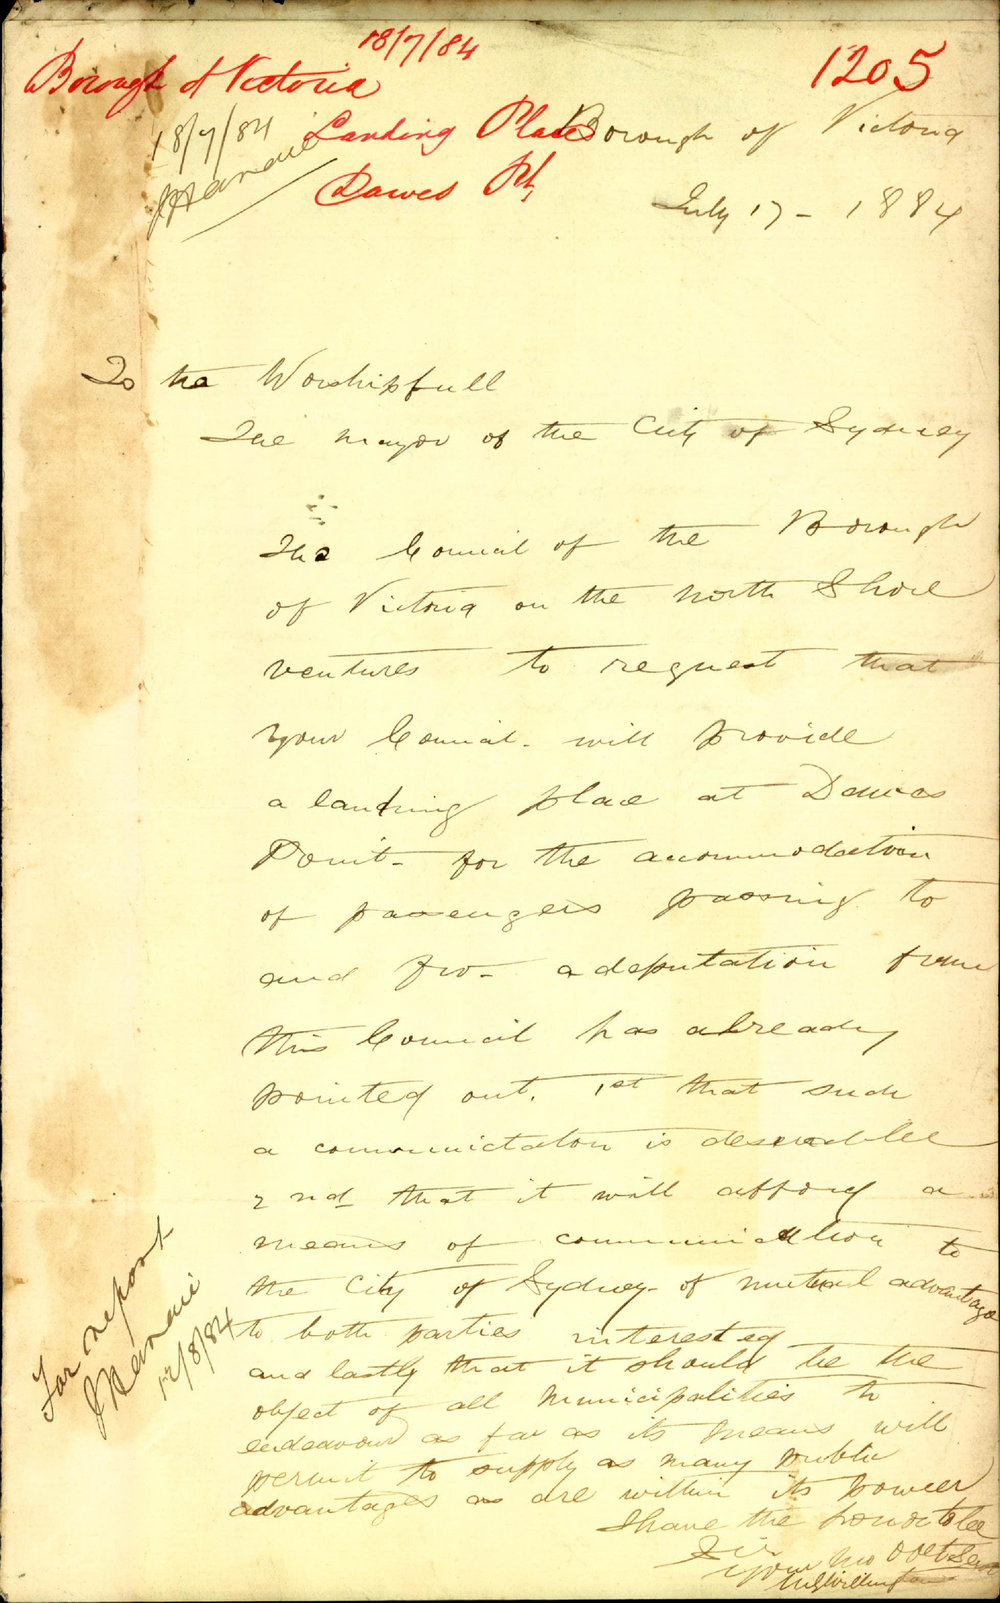 18/7/84
Borough of Victoria
1205
Landing Place
Dawes Pt,
18/7/84
Borough of Victoria
July 17 - 1884
To the Worshipfull
The mayor of the City of Sydney
The Council of the Borough
of Victoria on the North Shore
ventures to request that
your Council - will provide
a landing place at Dawes
Point - for the accommodation
of passengers passing to
and fro - a deputation from
this Council has already
pointed out. 1st that such
a commnictaton is deserablee
2nd that it will afford a
means of communication to
the City of Sydney - of mutual advantage
to both parties interested
and lastly that it should be the
object of all Municipalities to
endeavour as far as its means will
permit to supply as many public
advantages as are within its power
I have the honor to be
Sir
your mo obet Serv
For report
12/8/84